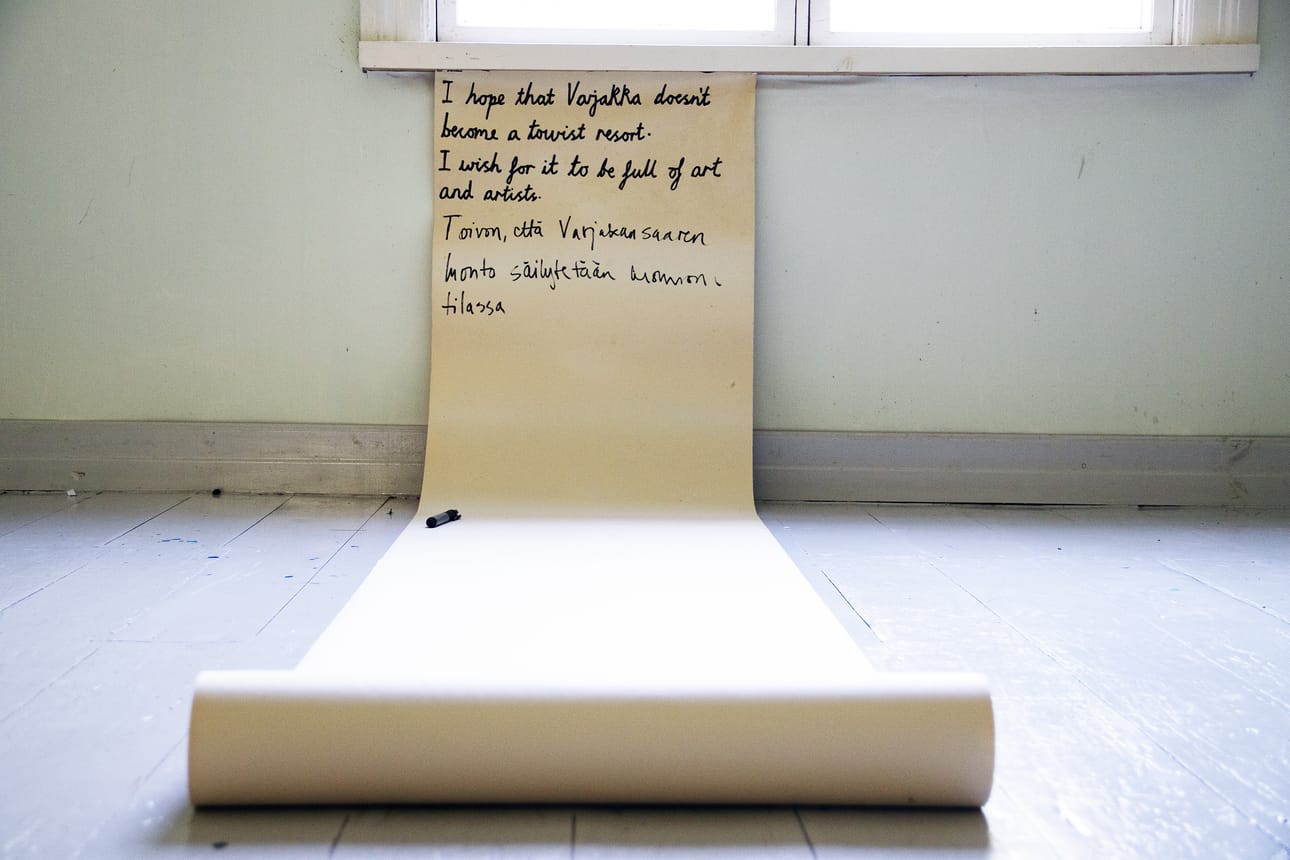 I hope that Varjakka doesn't
become a tourist resort.
I wish for it to be full of art
and artists.
Toivon, että Varjakansaaren
luonto säilytetään luonnon
tilassa